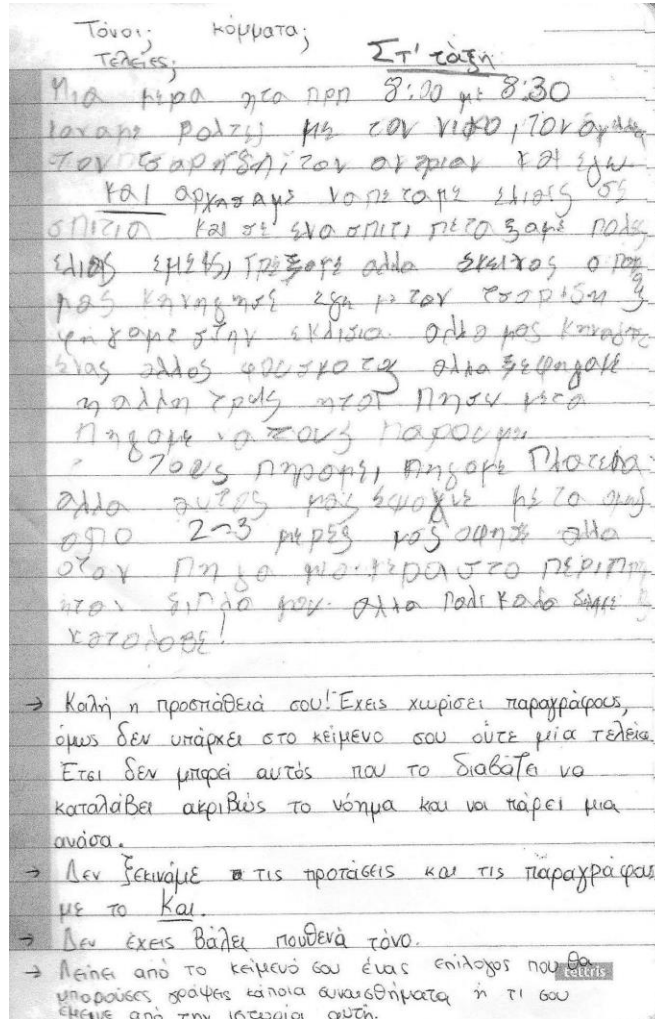 Τόνοι; κόμματα;
Τελείες; Στ' τάξη
Μια μερα ητα πρπ 8:00 με 8:30
βολτες με τον νικο, τον
τον τον αντριαν και εγω
και αρχησαμε να πεταμε ελιες σε
σπιτια και σε ενα σπιτι πεταξαμε πολες
ελιες εμεις, τρεξαμε αλλα εκεινος ο
μας κηνηγησε εγω με τον
φηγαμε στην εκλισια αλλα μας
ενας αλλος αλλα ξεφηγαμε
η αλλη τρεις ητον πησω μετα
πηγαμε να τους παρουμε
Τους πηραμε, πηγαμε Πλατεια
αλλα αυτος μας εψαχνε με το
απο 2-3 μερες μας αφησε αλλα
οταν πηγα στο
ηταν διπλα μου αλλα πολι καλα
καταλαβε!
→ Καλή η προσπάθειά σου! Έχεις χωρίσει παραγράφους,
όμως δεν υπάρχει στο κείμενο σου ούτε μία τελεία
Έτσι δεν μπορεί αυτός που το διαβάζει να
καταλάβει ακριβώς το νόημα και να πάρει μια
ανάσα.
→ Δεν ξεκινάμε τις προτάσεις και τις παραγράφους
με το Και.
→ Δεν έχεις βάλει πουθενά τόνο.
→ Λείπει από το κείμενό σου ένας επίλογος που θα
μπορούσες γράψεις κάποια συναισθήματα ή τι σου
έμεινε από την ιστορία αυτή.
tettris